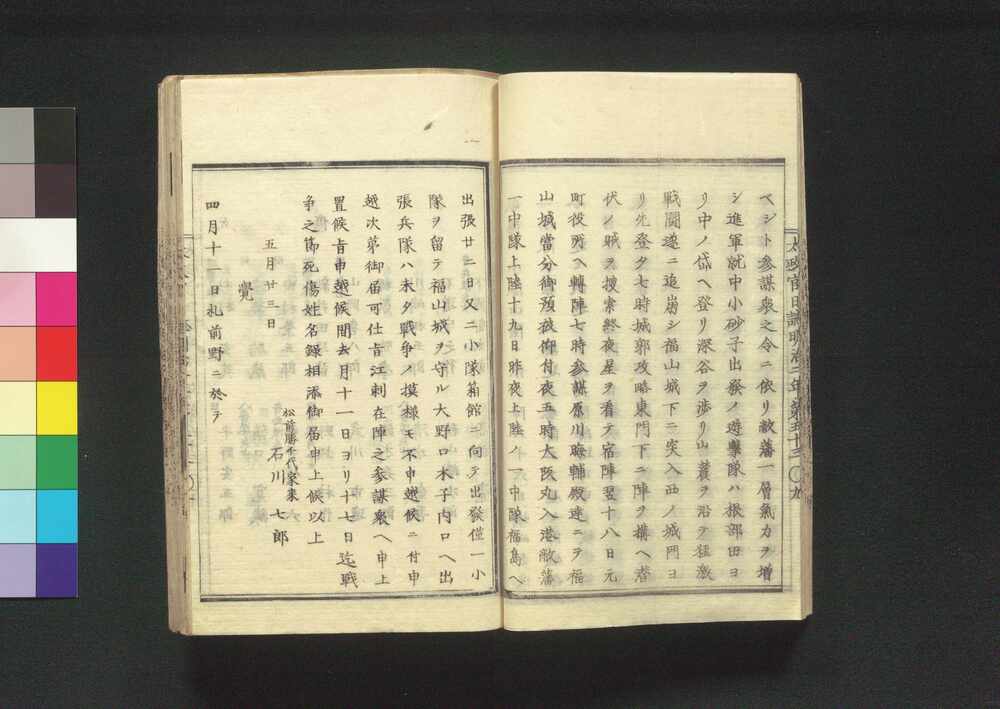 ベシト参謀衆之令ニ依リ敝藩一層氣力ヲ増
シ進軍就中小砂子出発ノ遊撃隊ハ根部田ヨ
リ中ノ岱ヘ登リ深谷ヲ渉リ山叢ヲ沿テ猛激
戰鬪遂ニ追崩シ福山城下ニ突入西ノ城門ヨ
リ先登夕七時城郭攻略東門下ニ陣ヲ構ヘ潜
伏ノ賊ヲ捜索終夜星ヲ看テ宿陣翌十八日元
町役所ヘ轉陣七時参謀原川晦輔殿迠ニテ福
山城當分御預被仰付夜五時大阪丸入港敝藩
一中隊上陸十九日昨夜上陸ノ一中隊福島ヘ
太政官日誌明治二年第五十三 〇九
出張廿二日又二小隊箱館ニ向テ出發僅一小
隊ヲ留テ福山城ヲ守ル大野口木子内口ヘ出
張兵隊ハ未タ戰爭ノ摸様モ不申越候ニ付申
越次第御届可仕旨江刺在陣之参謀衆ヘ申上
置候旨申越候間去月十一日ヨリ十七日迠戰
争之節死傷姓名録相添御届申上候以上
松前勝千代家来
五月廿三日 石川七郎
覺
四月十一日札前野ニ於テ